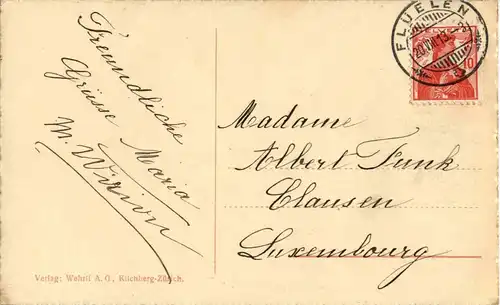 Freundliche
Grüsse Maria
M. Wirion
Verlag: Wehrli A. G., Kilchberg-Zürich.
FLUELEN
20.VIII.13.-2
10
Madame
Albert Funk
Clausen
Luxembourg